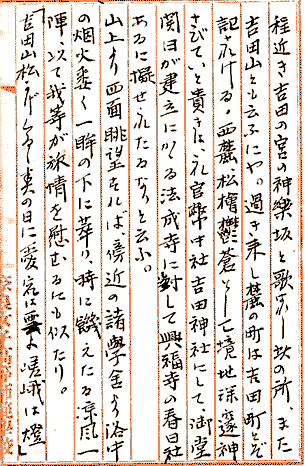 程近き吉田の宮の神樂坂と歌ひし坎の所、また
吉田山とも云ふにや。過ぎ来し麓の町は吉田町とぞ
記されける。西麓松檜鬱蒼として境地深邃神
さびていと貴きは、礼官幣中社吉田神社にして、御堂
関白が建立にかゝる法成寺に対して興福寺の春日社
あるに擬せれたるなりと云ふ。
山上より四面眺望すれば、傍近の諸學舎より洛中
の烟火悉く一眸の下に萃り、時に饑えたる凉風一
陣、以て我等が旅情を慰むるにも似たり。
「吉田山松の
春の日に愛宕は雲よ嵯峨は燈」